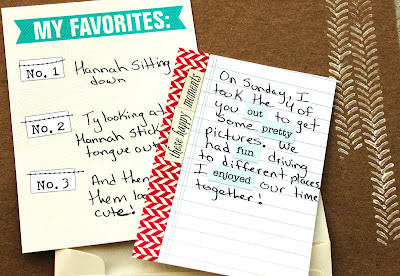 MY FAVORITES:
No. 1
Hannah Sitting
down
No. 2
Ty looking at
Hannah stick
tongue out
No. 3
And then
them loo
cute!
these happy moments
On Sunday, I
took the 4 of
you out to get
Some pretty
pictures. We
had fun driving
to different places.
I enjoyed our time
together!